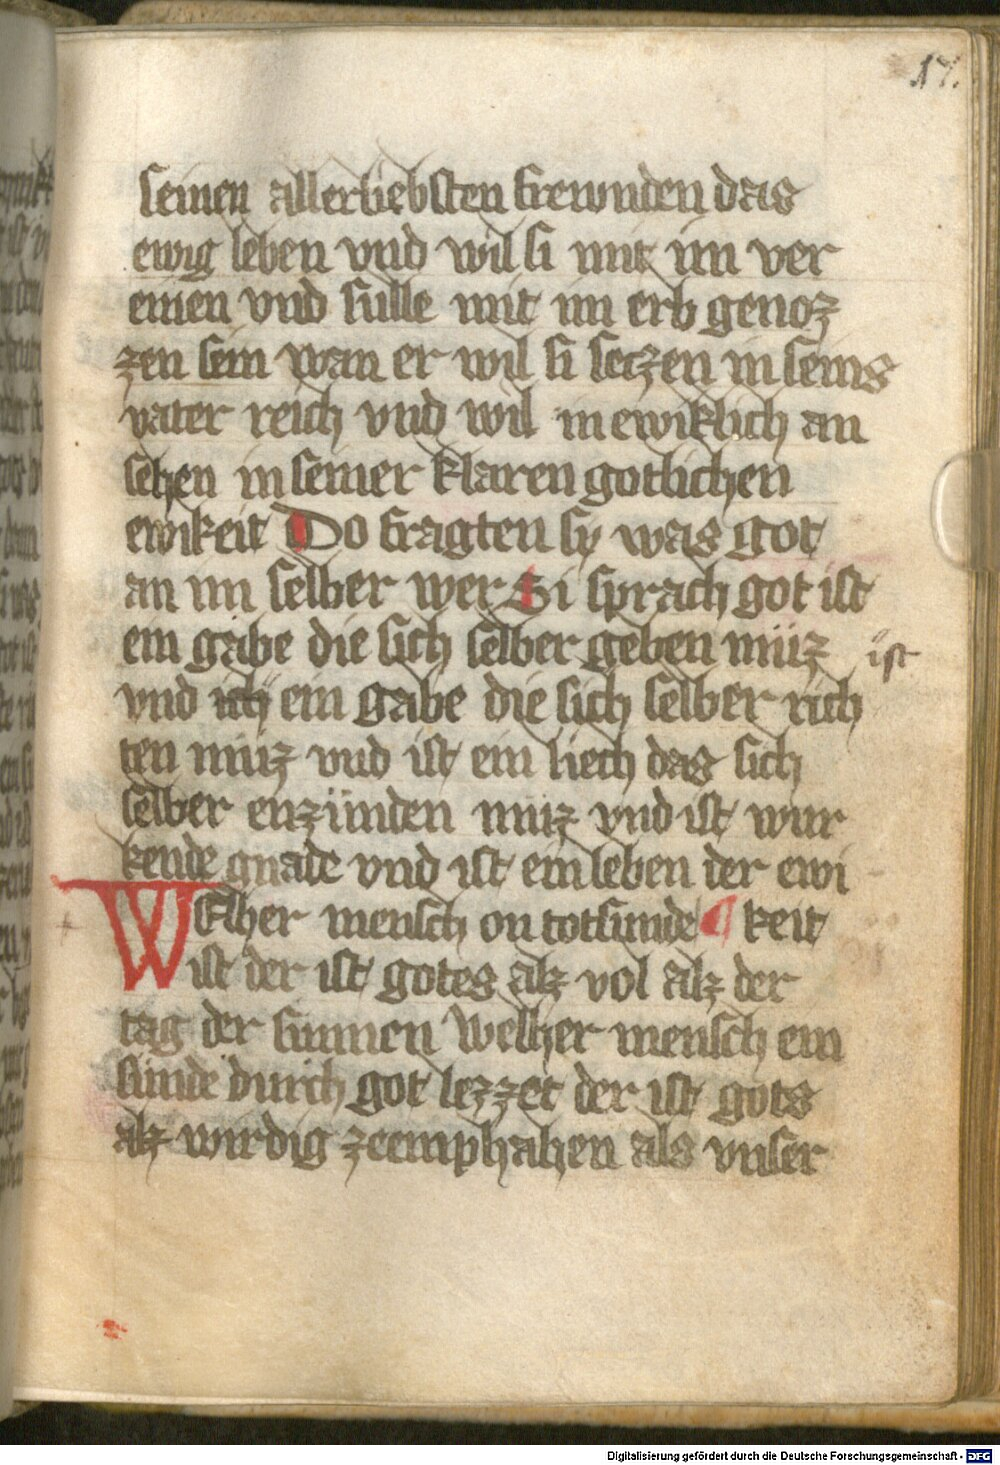 17.
seinen allerliebsten frewnden das
ewig leben vnd wil si mit im ver
einen vnd sulle mit im erb genoz
zen sein wan er wil si seczen in seins
vater reich vnd wil in ewiklich an
sehen in seiner klaren gotlichen
ewikeit Do fragten sy was got
an im selber wer Si sprach got ist
ein gabe die sich selber geben müz
ist
vnd ich ein gabe die sich selber rich
ten müz vnd ist ein liech das sich
selber enzünden müz vnd ist wur
kende gnade vnd ist ein leben der ewi
Welher mensch on totsunde ¶ keit
ist der ist gotes alz vol alz der
tag der sunnen Welher mensch ein
sünde durch got lezzet der ist gots
alz wirdig zeemphahen als vnser
Digitalisierung gefördert durch die Deutsche Forschungsgemeinschaft - DFG